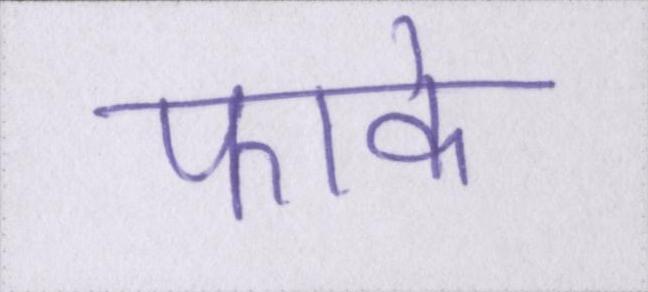 फाके